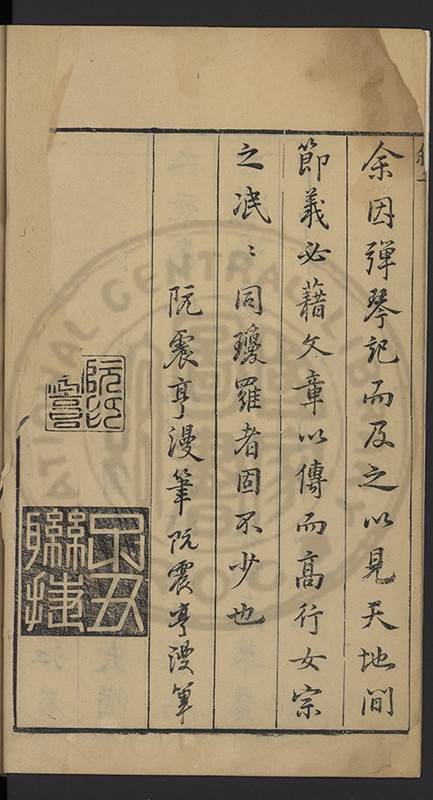 余因彈琴記而及之以見天地間
節義必藉文章以傳而髙行女宗
之泯〻同瓊羅者固不少也
阮震亨漫筆阮震亨漫筆
乙丑聯捷